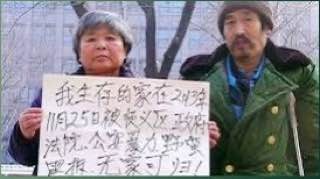 我生存的家在2013年
11月25日被顺义区政府
法院.公安暴力野蛮
强拆.无家可归!